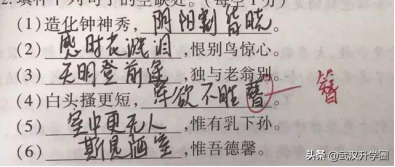 (1) 造化钟神秀,阴阳割昏晓。
(2) 感时花溅泪,恨别鸟惊心。
(3) 天明登前途,独与老翁别。
(4) 白头搔更短,浑欲不胜簪 簪
(5) 室中更无人,惟有乳下孙。
(6) 斯是陋室,惟吾德馨。
头条 @武汉升学圈